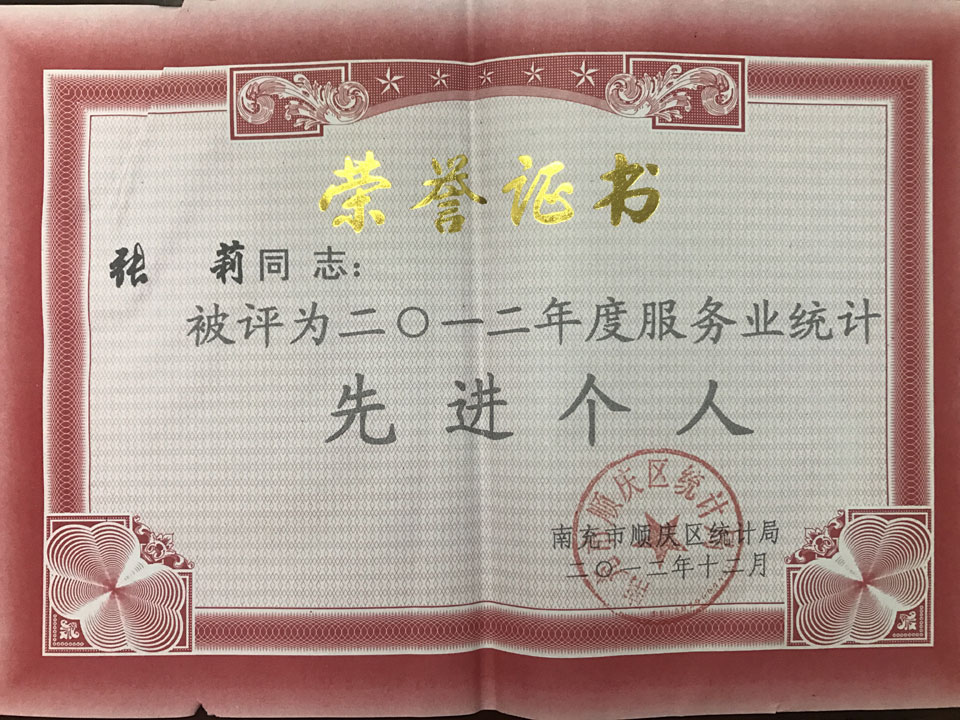 荣誉证书
张 莉同志：
被评为二〇一二年度服务业统计
先进个人
南充市顺庆区统计局
二〇一二年十二月